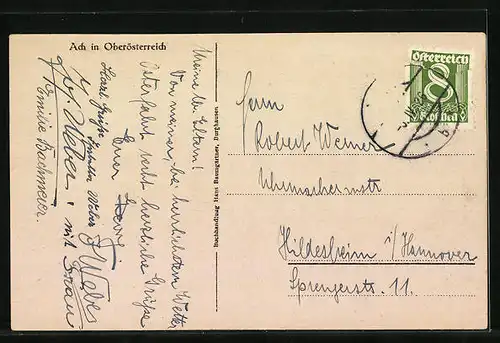 Ach in Oberösterreich
Meine lb. Eltern!
Von meiner, bei herrlichstem Wetter
Osterfahrt recht herzliche Grüße
Euer
Herzl. Grüße
Weber
J. Weber
mit Frau
Emilie Bachmeier.
Buchhandlung Hans Baumgartner, Burghausen
Österreich
8
Groschen
Herrn
Robert Werner
Uhrmachermstr
Hildesheim i/Hannover
Sprengerstr. 11.